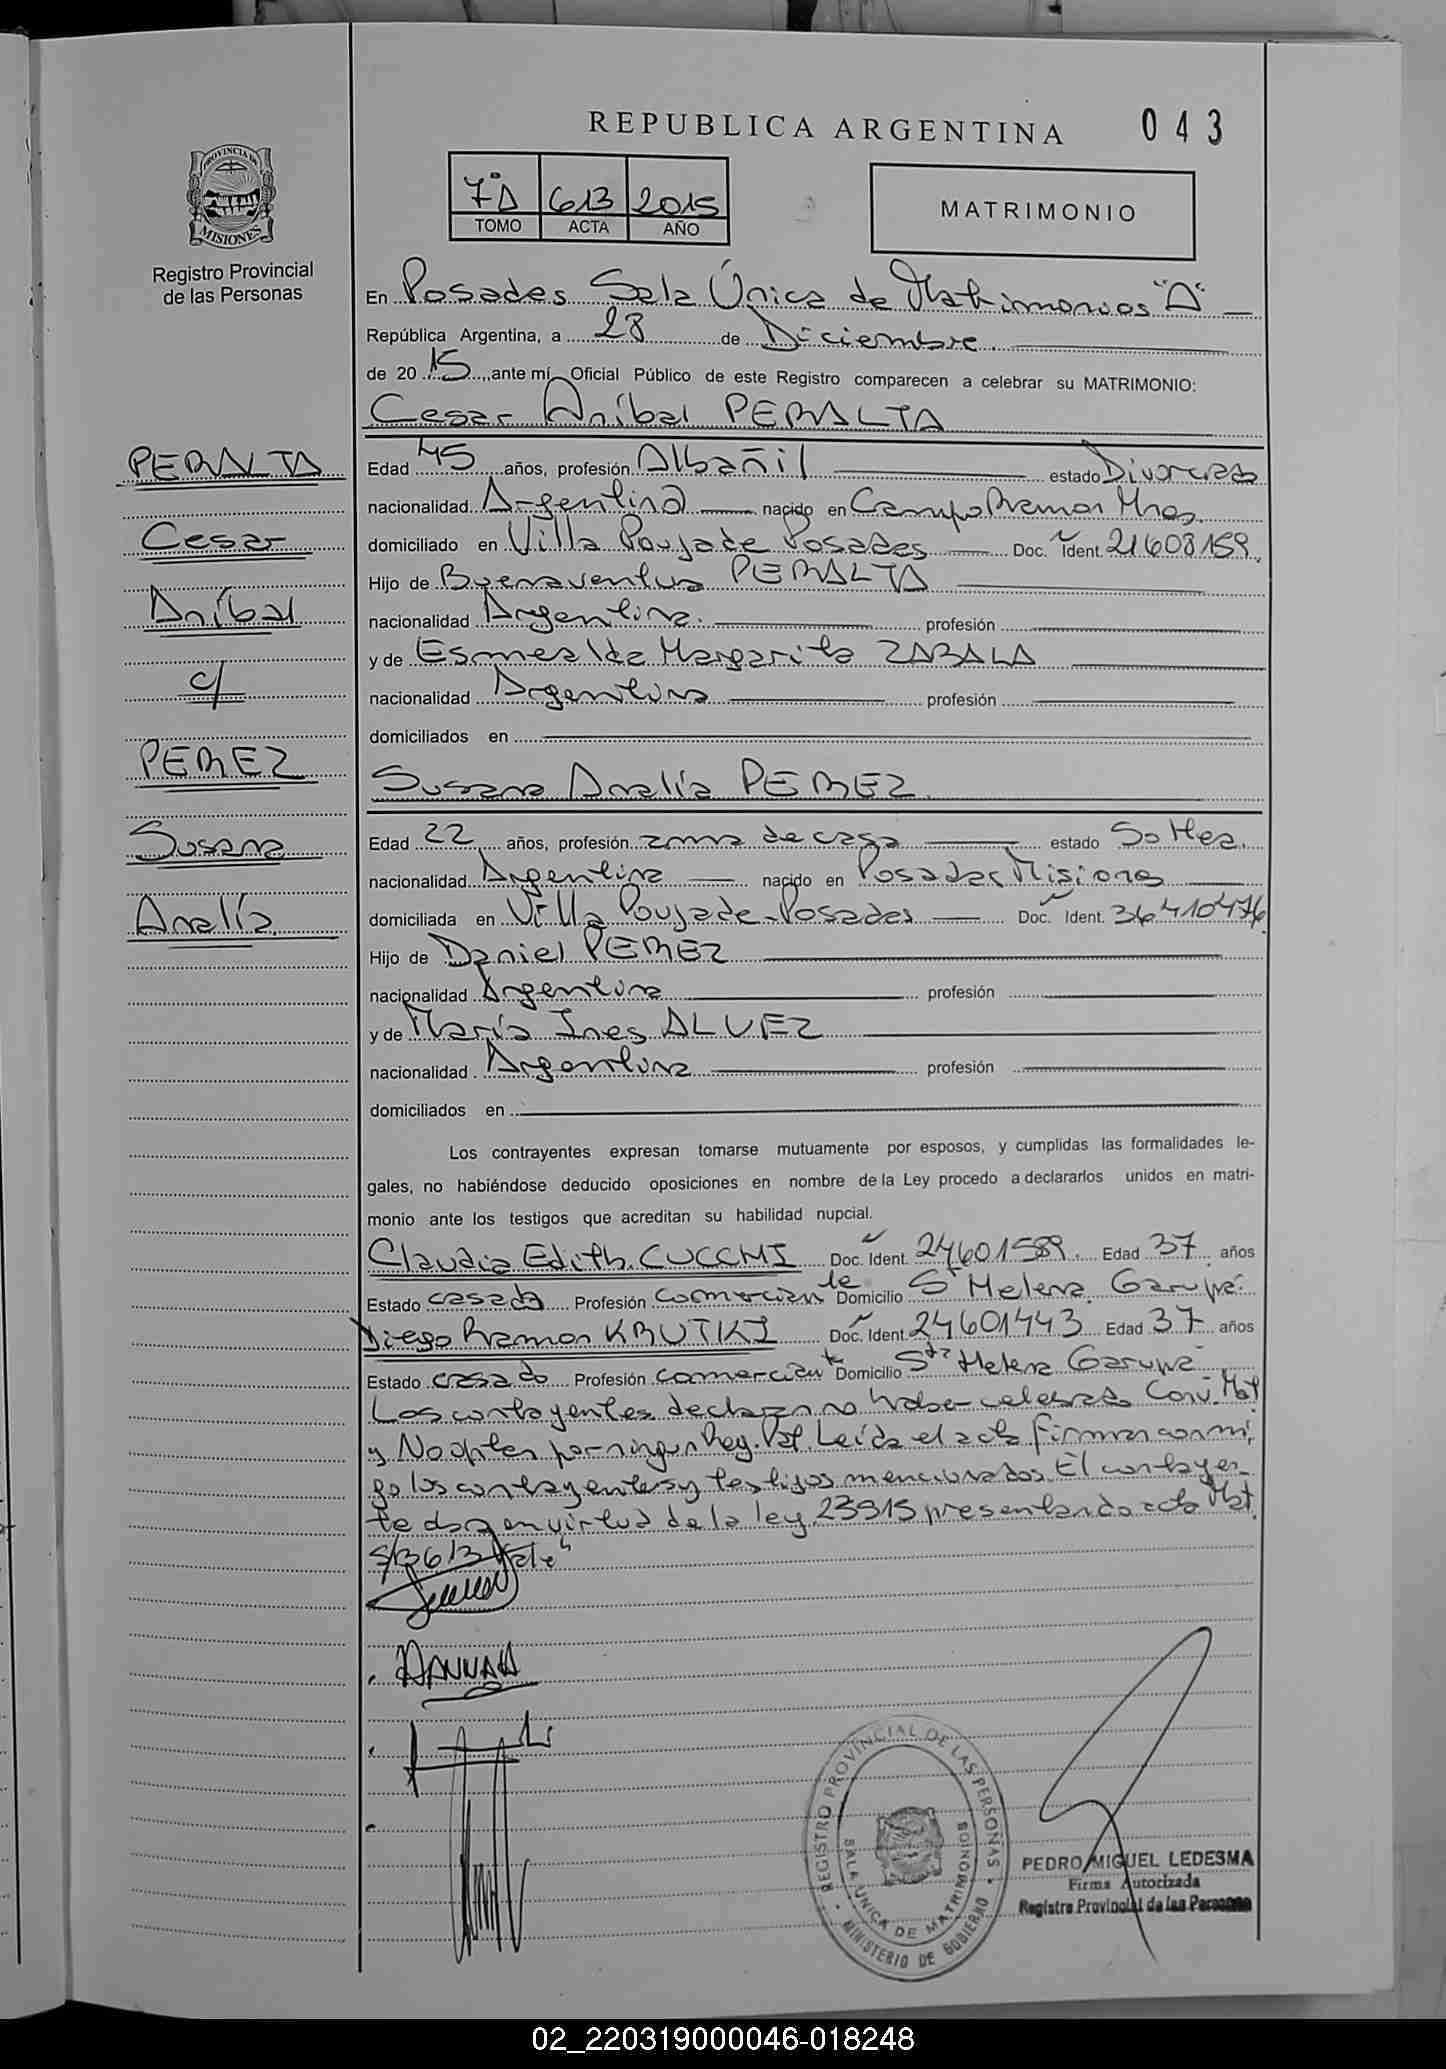 REPUBLICA ARGENTINA 043
PROVINCIA DE MISIONES
Registro Provincial
de las Personas
7°A 613 2015
TOMO ACTA AÑO
MATRIMONIO
En Posadas Sala Única de Matrimonios "A"
República Argentina, a 28 de Diciembre.
de 2015, ante mí, Oficial Público de este Registro comparecen a celebrar su MATRIMONIO:
Cesar Aníbal PERALTA
PERALTA
Cesar
Aníbal
c/
PEREZ
Susana
Analía
Edad 45 años, profesión Albañil estado Divorciado
nacionalidad Argentina nacido en Campo Ramon Mnes.
domiciliado en Villa Poujade Posadas Doc. Ident. 21608159
Hijo de Buenaventura PERALTA
nacionalidad Argentina. profesión
y de Esmeralda Margarita ZABALA
nacionalidad Argentina profesión
domiciliados en
Susana Analía PEREZ.
Edad 22 años, profesión ama de casa estado Soltera.
nacionalidad Argentina nacido en Posadas Misiones
domiciliada en Villa Poujade-Posadas Doc. Ident. 36410476
Hijo de Daniel PEREZ
nacionalidad Argentina profesión
y de María Ines ALVEZ
nacionalidad Argentina profesión
domiciliados en
Los contrayentes expresan tomarse mutuamente por esposos, y cumplidas las formalidades le-
gales, no habiéndose deducido oposiciones en nombre de la Ley procedo a declararlos unidos en matri-
monio ante los testigos que acreditan su habilidad nupcial.
Claudia Edith CUCCHI Doc. Ident. 24601589 Edad 37 años
Estado casada Profesión comerciante Domicilio Sta Helena Garupá
Diego Ramon KRUTKI Doc. Ident. 24601443 Edad 37 años
Estado casado Profesión comerciante Domicilio Sta Helena Garupá
Los contrayentes declaran no haber celebrado Conv. Mat
y No optan por ningun Reg. Pat. Leída el acta firman conmi
go los contrayentes y testigos mencionados. El contrayen-
te en virtud de la ley 23515 presentando acta Mat.
PEDRO MIGUEL LEDESMA
Firma Autorizada
Registro Provincial de las Personas
REGISTRO PROVINCIAL DE LAS PERSONAS
SALA UNICA DE MATRIMONIOS
MINISTERIO DE GOBIERNO
02_220319000046-018248